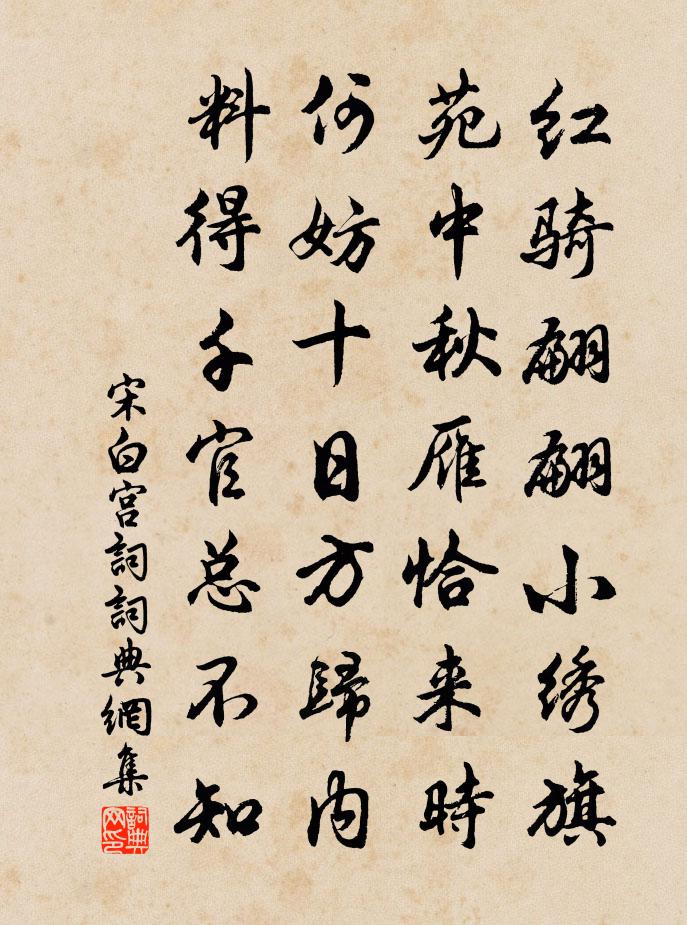 红骑翩翩小绣旗
苑中秋雁恰来時
何妨十日方歸内
料得千官总不知
宋白宫詞詞典網集
詞典网印